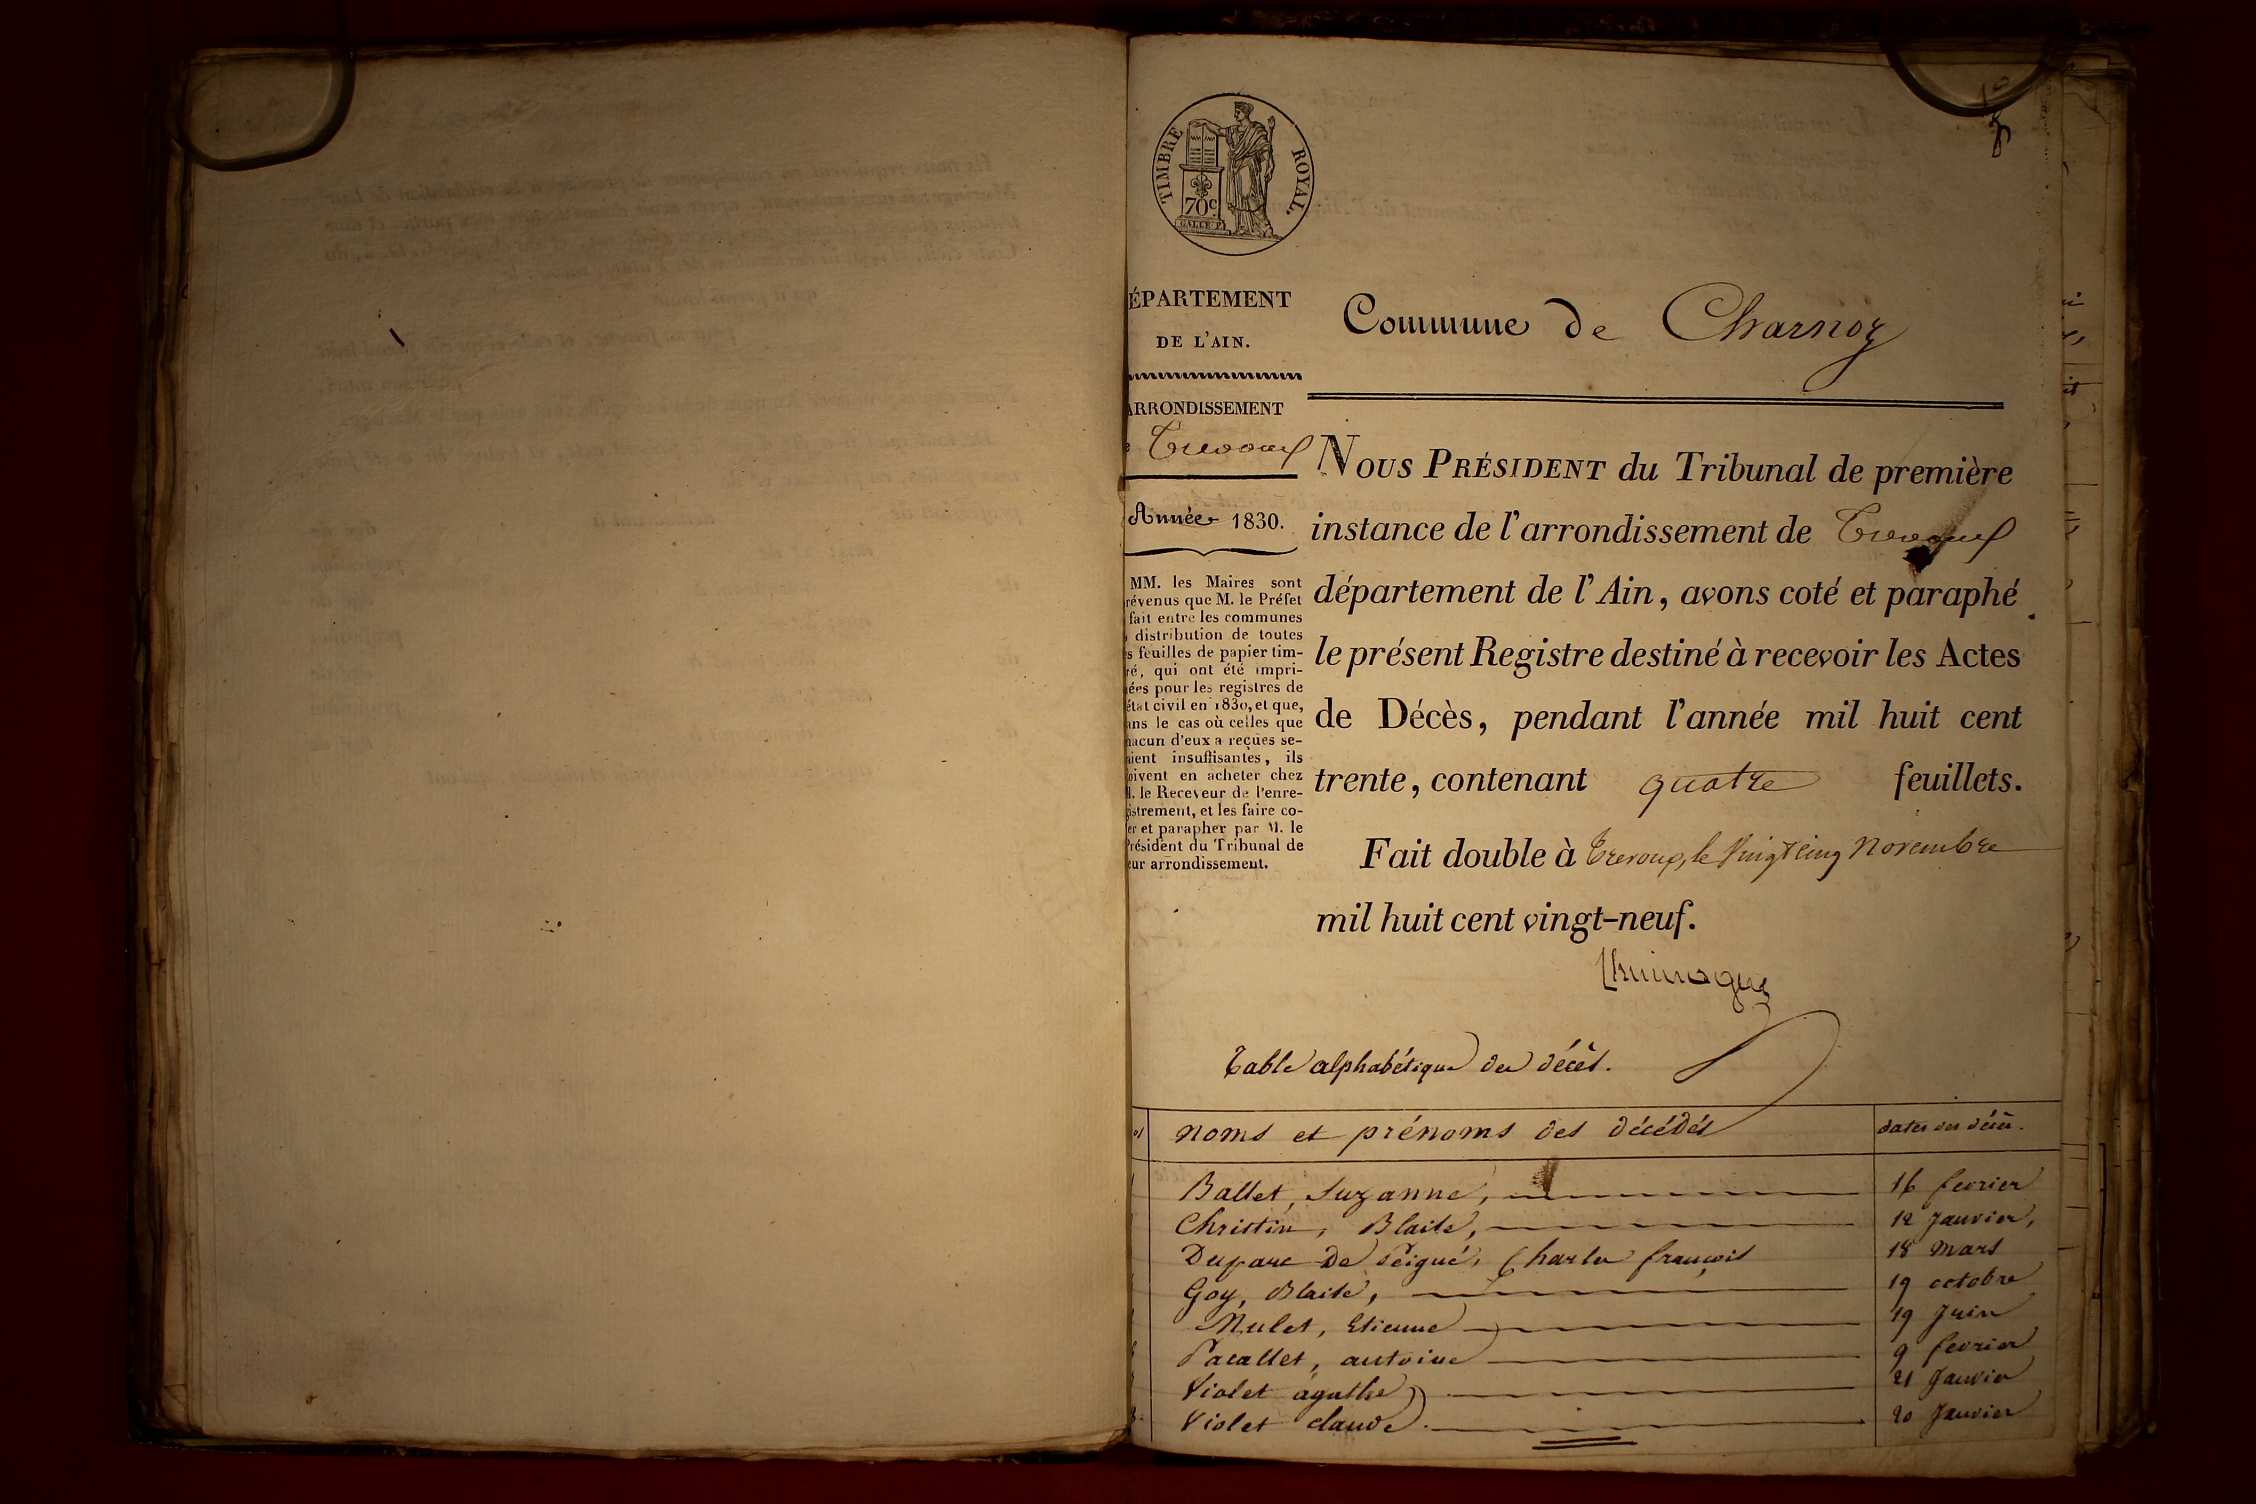 TIMBRE ROYAL.
70c.
GALLE F.
ÉPARTEMENT
DE L'AIN.
ARRONDISSEMENT
Trevoux
Année 1830.
MM. les Maires sont
révenus que M. le Préfet
fait entre les communes
distribution de toutes
s feuilles de papier tim-
ré, qui ont été impri-
ées pour les registres de
état civil en 1830, et que,
ans le cas où celles que
hacun d'eux a reçues se-
aient insuffisantes, ils
oivent en acheter chez
M. le Receveur de l'enre-
istrement, et les faire co-
er et parapher par M. le
Président du Tribunal de
eur arrondissement.
Commune de Charnoz
NOUS PRÉSIDENT du Tribunal de première
instance de l'arrondissement de Trevoux
département de l'Ain, avons coté et paraphé
le présent Registre destiné à recevoir les Actes
de Décès, pendant l'année mil huit cent
trente, contenant quatre feuillets.
Fait double à Trevoux, le Vingt cinq Novembre
mil huit cent vingt-neuf.
Table alphabétique des décès.
noms et prénoms des décédés
dates des décès.
Ballet, Suzanne, 16 fevrier
Christin, Blaise, 12 Janvier,
Duparc De Peigné, Charles françois 18 Mars
Goy, Blaise, 19 octobre
Mulet, Etienne 19 Juin
Pacallet, antoine 9 fevrier
Violet agathe 21 Janvier
Violet claude. 20 Janvier